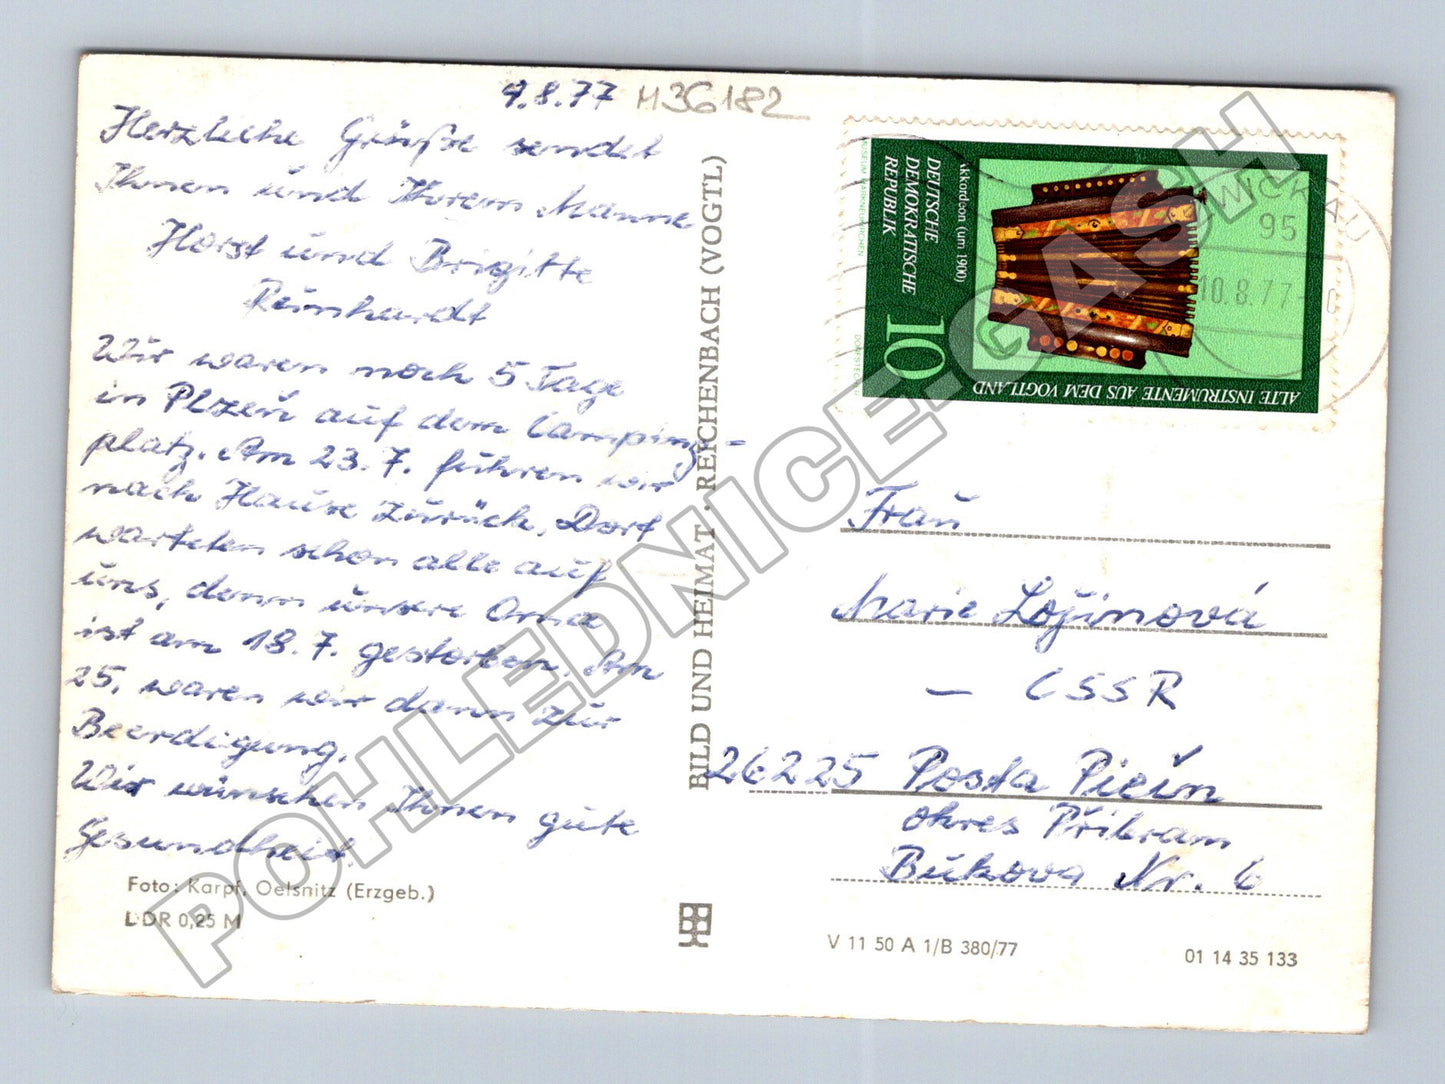 9.8.77 M36182
Herzliche Grüße sendet
Ihnen und Ihrem Manne
Horst und Brigitte
Reinhardt
Wir waren noch 5 Tage
in Plzeň auf dem Camping-
platz. Am 23.7. fuhren wir
nach Hause zurück. Dort
warteten schon alle auf
uns, denn unsere Oma
ist am 18.7. gestorben. Am
25. waren wir dann zur
Beerdigung.
Wir wünschen Ihnen gute
Gesundheit.
Foto: Karpf, Oelsnitz (Erzgeb.)
DDR 0,25 M
BILD UND HEIMAT · REICHENBACH (VOGTL)
Akkordeon (um 1900)
DEUTSCHE
DEMOKRATISCHE
REPUBLIK
10
MUSEUM MARKNEUKIRCHEN
ALTE INSTRUMENTE AUS DEM VOGTLAND
ZWICKAU
95
10.8.77
Frau
Marie Ložinová
— CSSR
26225 Posta Pičín
okres Přibram
Bukova Nr. 6
V 11 50 A 1/B 380/77
01 14 35 133
POHLEDNICE.GASH